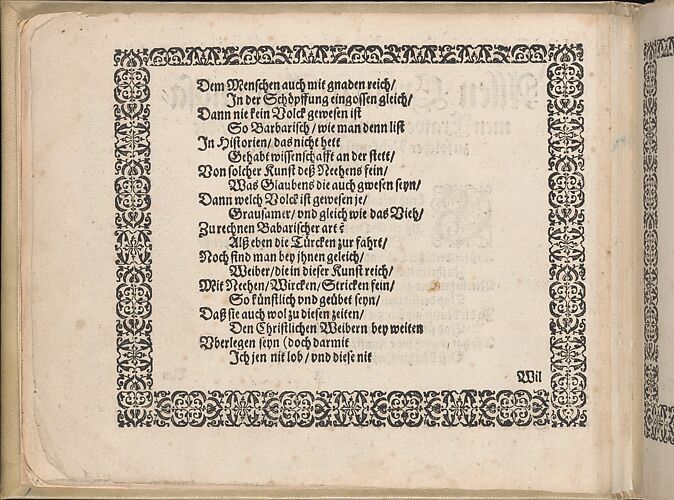 Dem Menschen auch mit gnaden reich/
In der Schöpffung eingossen gleich/
Dann nie kein Volck gewesen ist
So Barbarisch/ wie man denn list
In Historien/ das nicht hett
Gehabt wissenschafft an der stett/
Von solcher Kunst deß Neehens fein/
Was Glaubens die auch gwesen seyn/
Dann welch Volck ist gewesen je/
Grausamer/ vnd gleich wie das Vieh/
Zu rechnen Babarischer art
Alß eben die Türcken zur fahrt/
Noch find man bey jhnen geleich/
Weiber/ die in dieser Kunst reich/
Mit Neehen/ Wircken/ Stricken fein/
So künstlich vnd geübet seyn/
Daß sie auch wol zu diesen zeiten/
Den Christlichen Weibern bey weiten
Vberlegen seyn (doch darmit
Ich jen nit lob/ vnd diese nit
Wil